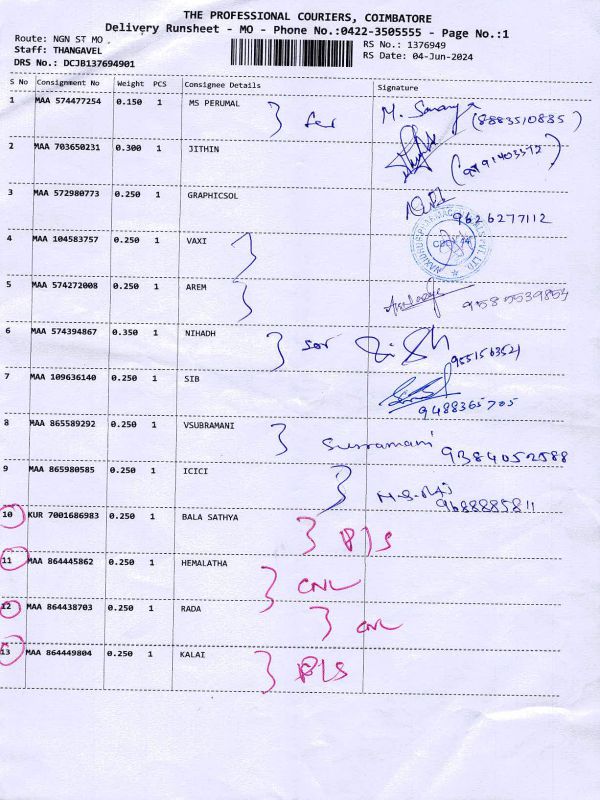 THE PROFESSIONAL COURIERS, COIMBATORE
Delivery Runsheet - MO - Phone No.:0422-3505555 - Page No.:1
Route: NGN ST MO
RS No.: 1376949
Staff: THANGAVEL
RS Date: 04-Jun-2024
DRS No.: DCJB137694901
S No Consignment No Weight PCS Consignee Details Signature
1 MAA 574477254 0.150 1 MS PERUMAL (8883510835)
2 MAA 703650231 0.300 1 JITHIN
3 MAA 572980773 0.250 1 GRAPHICSOL 9626277112
4 MAA 104583757 0.250 1 VAXI
5 MAA 574272008 0.250 1 AREM
6 MAA 574394867 0.350 1 NIHADH
7 MAA 109636140 0.250 1 SIB 9488365705
8 MAA 865589292 0.250 1 VSUBRAMANI 9384052588
9 MAA 865980585 0.250 1 ICICI
10 KUR 7001686983 0.250 1 BALA SATHYA
11 MAA 864445862 0.250 1 HEMALATHA CNL
12 MAA 864438703 0.250 1 RADA CNL
13 MAA 864449804 0.250 1 KALAI